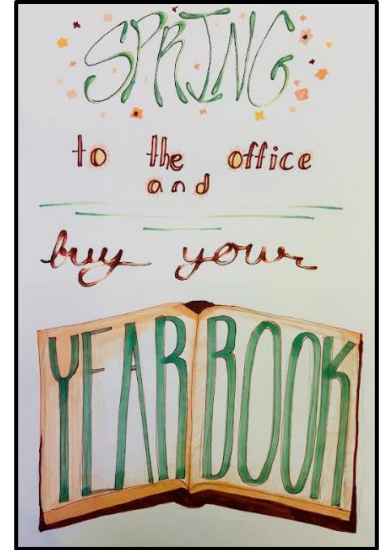 SPRING
to the office
and
buy your
YEARBOOK